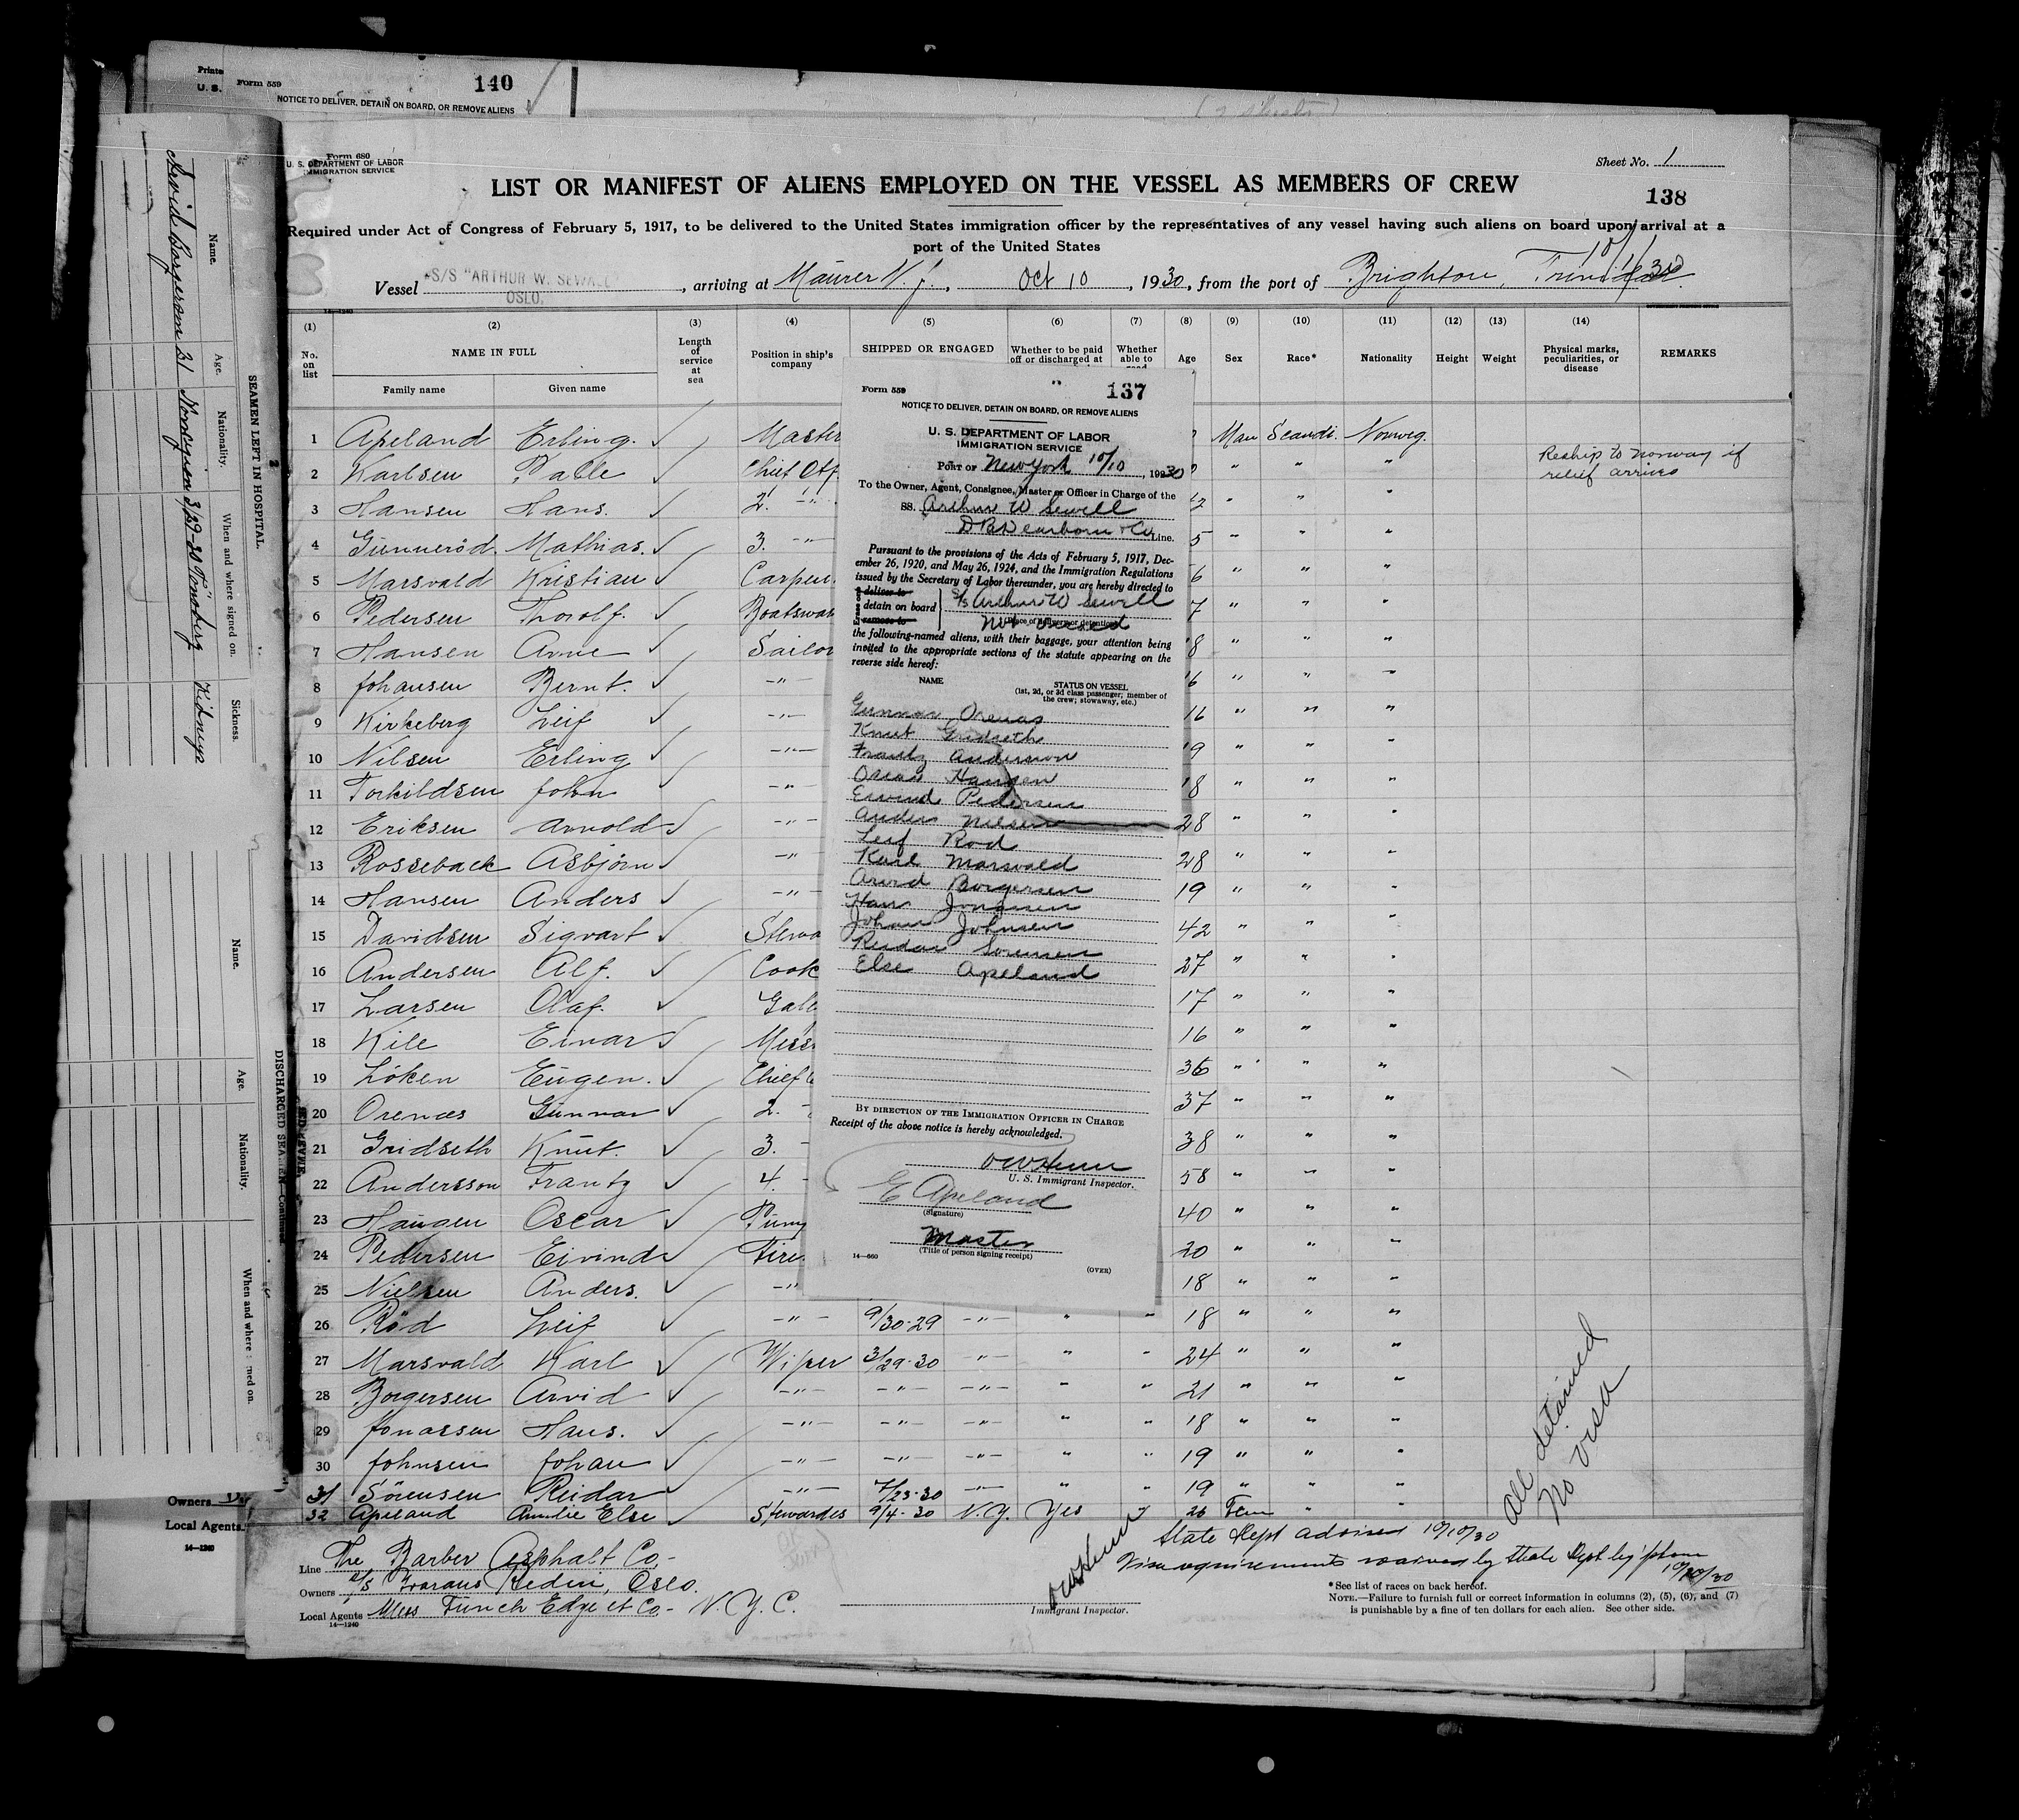 Printe
U. S.
Form 559
140
NOTICE TO DELIVER, DETAIN ON BOARD, OR REMOVE ALIENS
Form 680
U. S. DEPARTMENT OF LABOR
IMMIGRATION SERVICE
Sheet No. 1
LIST OR MANIFEST OF ALIENS EMPLOYED ON THE VESSEL AS MEMBERS OF CREW
138
Required under Act of Congress of February 5, 1917, to be delivered to the United States immigration officer by the representatives of any vessel having such aliens on board upon arrival at a
port of the United States
Vessel S/S "ARTHUR W. SEWALL" OSLO, arriving at Maurer N. J., Oct 10, 1930, from the port of Brighton, Trinidad.
14-1240
(1) (2) (3) (4) (5) (6) (7) (8) (9) (10) (11) (12) (13) (14)
No. on list
NAME IN FULL
Family name Given name
Length of service at sea
Position in ship's company
SHIPPED OR ENGAGED
Whether to be paid off or discharged at
Whether able to read
Age Sex Race* Nationality Height Weight
Physical marks, peculiarities, or disease
REMARKS
1 Apeland Erling. Master Man Scandi. Norweg.
2 Karlsen Palle Chief Off. " " " Reship to Norway if relief arrives
3 Hansen Hans. 2. -"- 2 " " "
4 Gunneröd. Mathias. 3. -"- 5 " " "
5 Marsvald Kristian Carpen 6 " " "
6 Pedersen Thorolf. Boatswa 7 " " "
7 Hansen Arne Sailor 8 " " "
8 Johansen Bernt. -"- 6 " " "
9 Kirkeberg Leif -"- 16 " " "
10 Nilsen Erling -"- 19 " " "
11 Torkildsen John -"- 18 " " "
12 Eriksen Arnold -"- 28 " " "
13 Rosseback Asbjörn -"- 28 " " "
14 Hansen Anders -"- 19 " " "
15 Davidsen Sigvart Stewa 42 " " "
16 Andersen Alf. Cook 27 " " "
17 Larsen Olaf. Gall 17 " " "
18 Kile Einar Mess 16 " " "
19 Löken Eugen. Chief 36 " " "
20 Orenæs Gunnar 2. - 37 " " "
21 Gridseth Knut. 3. - 38 " " "
22 Andersson Frantz 4. - 58 " " "
23 Haugen Oscar Pump 40 " " "
24 Pedersen Eivind Fire 20 " " "
25 Nielsen Anders. -" 18 " " "
26 Röd Leif -"- 9/30-29 -"- " " 18 " " "
27 Marsvald Karl Wiper 3/29-30 -"- " " 24 " " "
28 Borgersen Arvid -"- -"- -"- " " 21 " " "
29 Jonassen Hans. -"- -"- -"- " " 18 " " "
30 Johnsen Johan -"- -"- -"- " " 19 " " "
31 Sörensen Reidar -"- 7/23-30 -"- " " 19 " " "
32 Apeland Else Stewardes 9/4-30 N.Y. Yes " 26 Fem " "
All detained
No visa
State Dept advised 10/10/30
Visa requirements waived by State Dept by 'phone
10/10/30
Line The Barber Asphalt Co.-
Owners Oslo.
Local Agents Mess Funch Edye et Co- N.Y.C.
14-1240
Immigrant Inspector.
*See list of races on back hereof.
NOTE.—Failure to furnish full or correct information in columns (2), (5), (6), and (7)
is punishable by a fine of ten dollars for each alien. See other side.
Form 559
137
NOTICE TO DELIVER, DETAIN ON BOARD, OR REMOVE ALIENS
U. S. DEPARTMENT OF LABOR
IMMIGRATION SERVICE
PORT OF New York 10/10, 1930
To the Owner, Agent, Consignee, Master or Officer in Charge of the
SS. Arthur W Sewell
D B Dearborn & Co Line.
Pursuant to the provisions of the Acts of February 5, 1917, Dec-
ember 26, 1920, and May 26, 1924, and the Immigration Regulations
issued by the Secretary of Labor thereunder, you are hereby directed to
deliver to
detain on board S/s Arthur W Sewell
remove to
Not visaed
(Place of delivery or detention)
the following-named aliens, with their baggage, your attention being
invited to the appropriate sections of the statute appearing on the
reverse side hereof:
NAME
STATUS ON VESSEL
(1st, 2d, or 3d class passenger; member of
the crew; stowaway, etc.)
Gunnar Orenas
Knut Gridseth
Frantz Anderson
Oscar Haugen
Eivind Pedersen
Anders Nielsen
Leif Rod
Karl Marsvald
Arvid Borgersen
Hans Jonassen
Johan Johnsen
Reidar Sorensen
Else Apeland
BY DIRECTION OF THE IMMIGRATION OFFICER IN CHARGE
Receipt of the above notice is hereby acknowledged.
U. S. Immigrant Inspector.
E Apeland
(Signature)
Master
(Title of person signing receipt)
14-560
(OVER)
SEAMEN LEFT IN HOSPITAL.
Name. Age. Nationality. When and where signed on. Sickness.
21 Norwegian 3/29-30 Tönsberg Kidneys
DISCHARGED SEAMEN—Continued
Name. Age. Nationality. When and where signed on.
Owners
Local Agents
14-1240